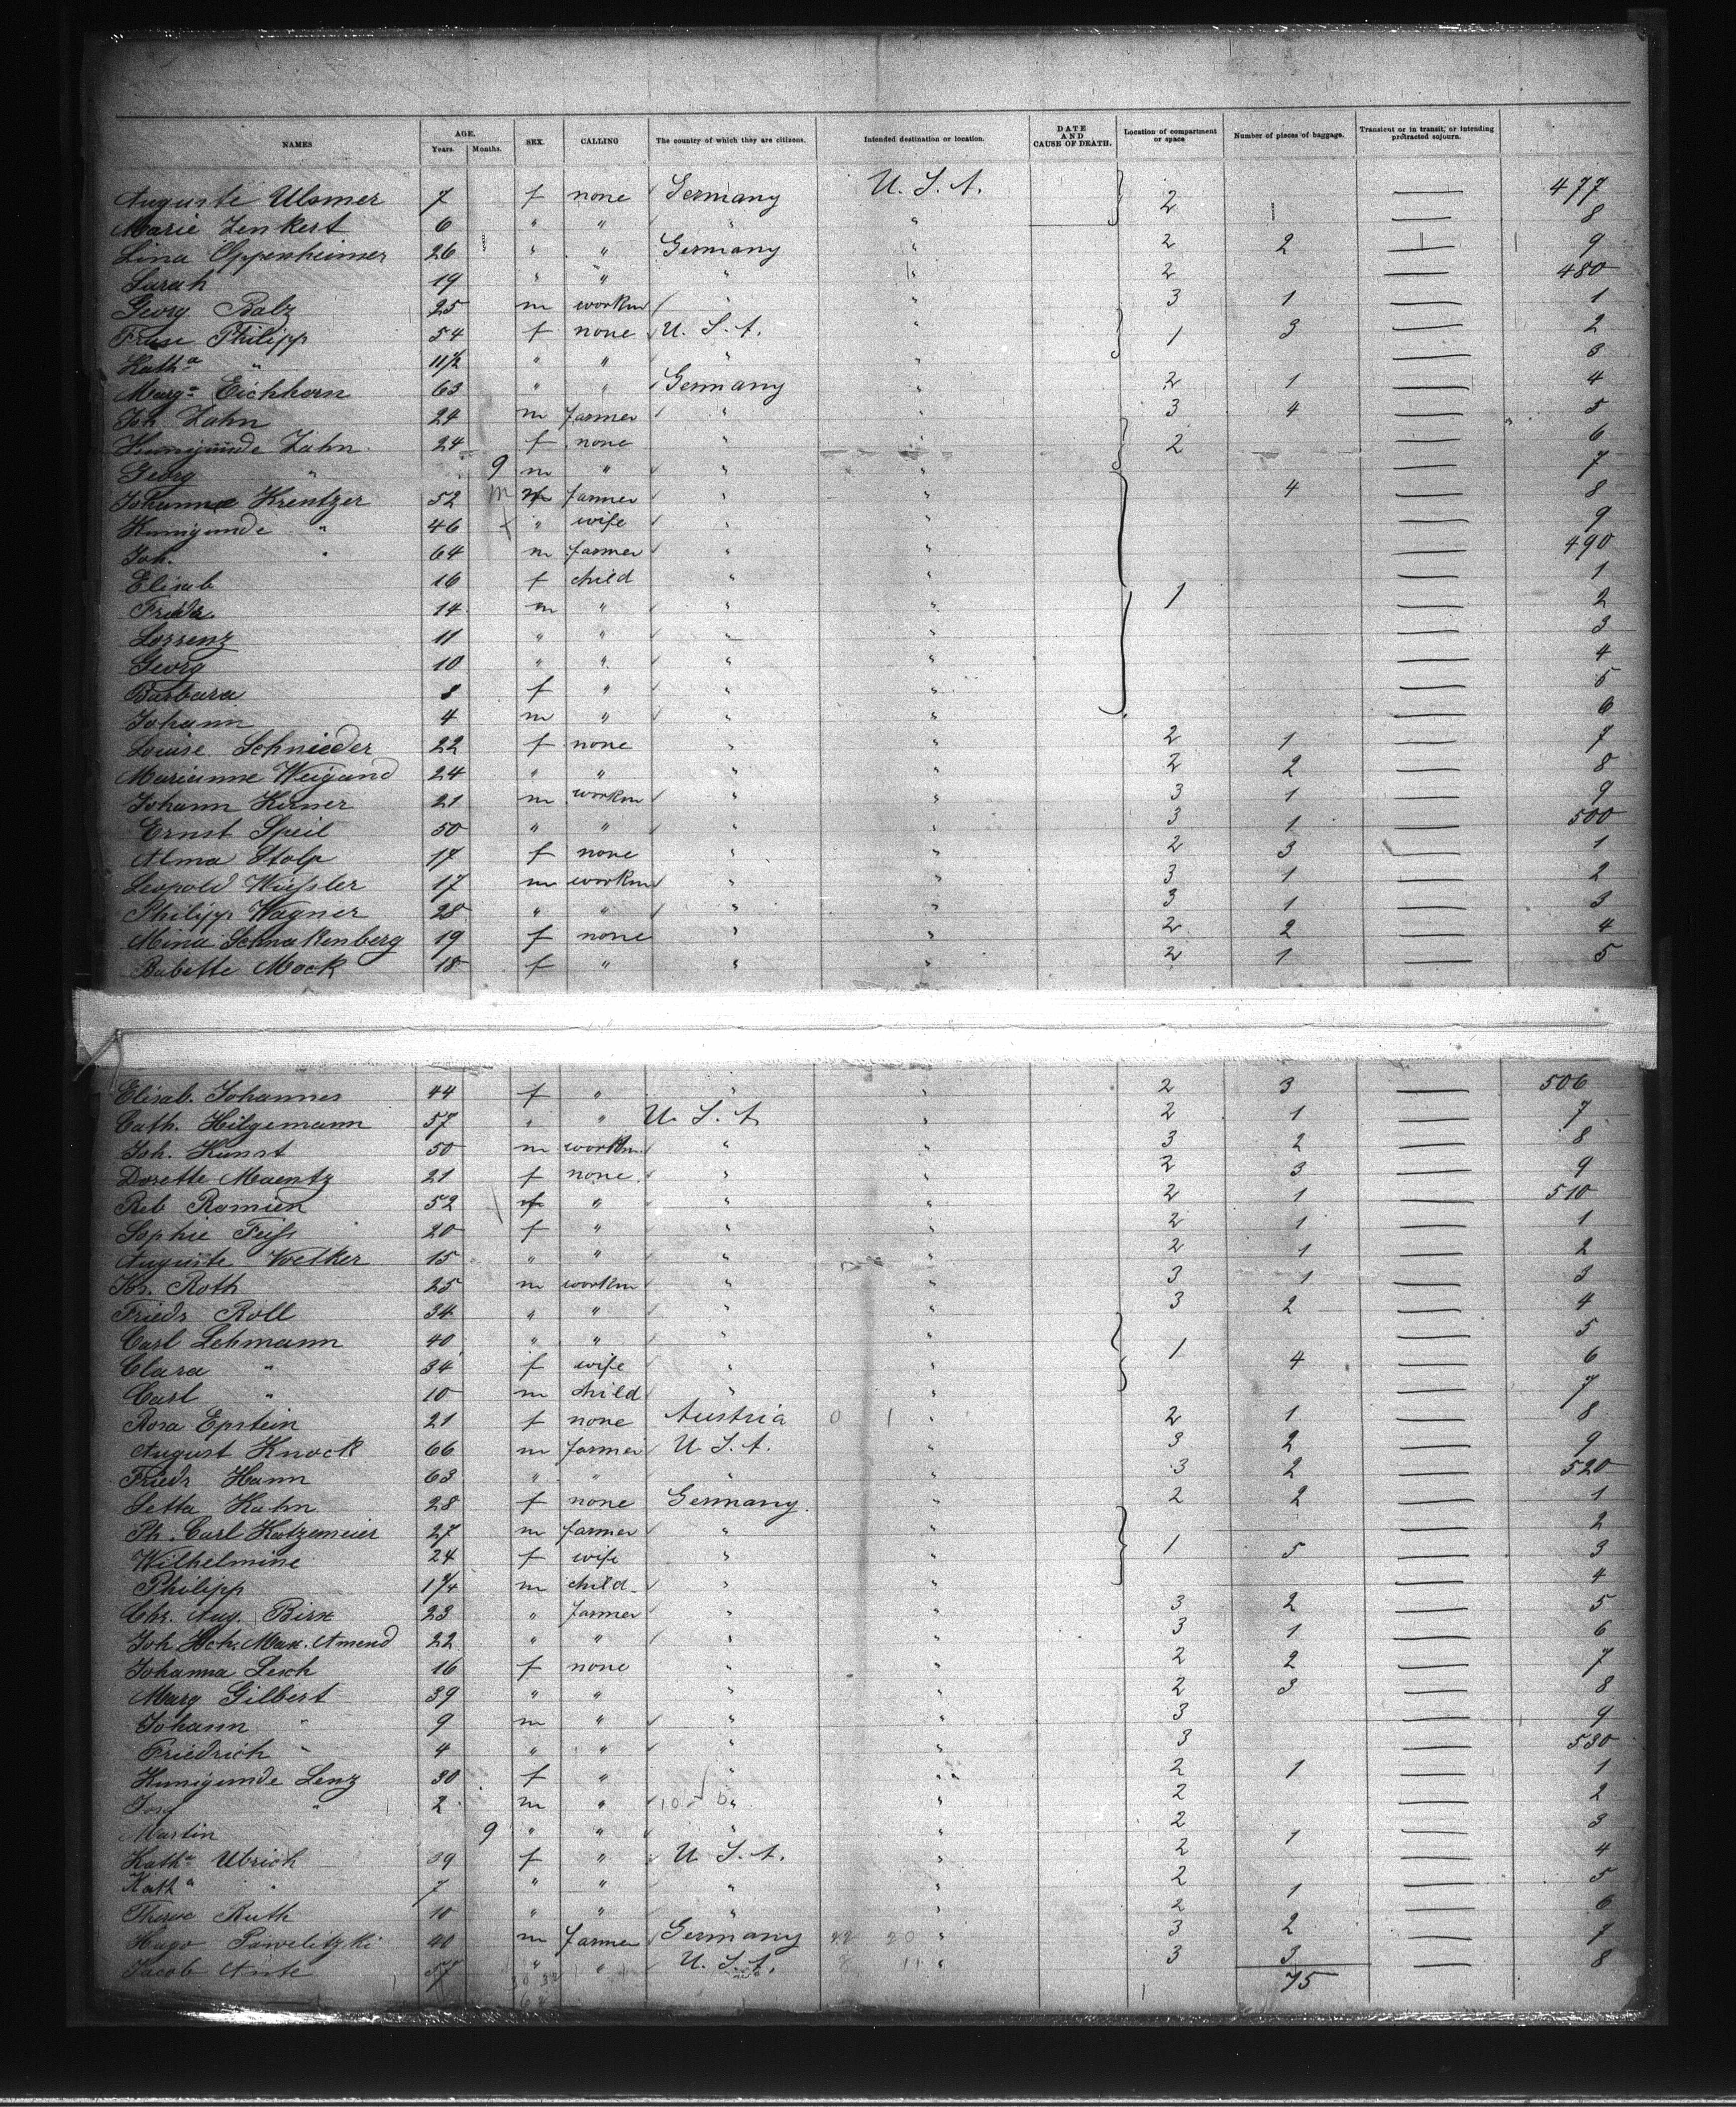 NAMES AGE. Years. Months. SEX. CALLING The country of which they are citizens. Intended destination or location. DATE AND CAUSE OF DEATH. Location of compartment or space Number of pieces of baggage. Transient or in transit, or intending protracted sojourn.
Auguste Ulsmer 7 f none Germany U. S. A. 2 — 477
Marie Zenkert 6 " " " " — 8
Lina Oppenheimer 26 " " Germany " 2 2 — 9
Sarah 19 " " " " 2 — 480
Georg Balz 25 m workm " " 3 1 — 1
Philipp 54 f none U. S. A. " 1 3 — 2
Katha " 11½ " " " " — 3
Marga Eichhorn 63 " " Germany " 2 1 — 4
Joh Zahn 24 m farmer " " 3 4 — 5
Kunigunde Zahn 24 f none " " 2 — 6
Georg " 9 m " " " — 7
Krentzer 52 m farmer " " 4 — 8
Kunigunde " 46 f " wife " " — 9
Joh. " 64 m farmer " " — 490
Elisab 16 f child " " — 1
14 m " " " 1 — 2
Lorrenz 11 " " " " — 3
Georg 10 " " " " — 4
Barbara 8 f " " " — 5
Johann 4 m " " " — 6
Louise Schnieder 22 f none " " 2 1 — 7
Marianne Weigand 24 " " " " 2 2 — 8
Johann Kerner 21 m workm " " 3 1 — 9
Ernst Speil 50 " " " " 3 1 — 500
Alma Stolp 17 f none " " 2 3 — 1
Leopold 17 m workm " " 3 1 — 2
Philipp Wagner 28 " " " " 3 1 — 3
Mina Schnakenberg 19 f none " " 2 2 — 4
Babette Mock 18 f " " " 2 1 — 5
Elisab. Johannes 44 f " " " 2 3 — 506
Cath. Hilgemann 57 " " U. S. A " 2 1 — 7
Joh. Kunst 50 m workm " " 3 2 — 8
Dorette Maentz 21 f none " " 2 3 — 9
Reb Ramien 52 f " " " 2 1 — 510
Sophie Feiss 20 f " " " 2 1 — 1
Auguste Voelker 15 " " " " 2 1 — 2
Kr. Roth 25 m workm " " 3 1 — 3
Friedr Roll 34 " " " " 3 2 — 4
Carl Lehmann 40 " " " " 1 4 — 5
Clara " 34 f wife " " — 6
Carl " 10 m child " " — 7
Rosa Epstein 21 f none Austria 0 1 " 2 1 — 8
August Knock 66 m farmer U. S. A. " 3 2 — 9
Friedr Hann 63 " " " " 3 2 — 520
Setta Kahn 28 f none Germany. " 2 2 — 1
Ph. Carl Kotzemeier 27 m farmer " " — 2
Wilhelmine 24 f wife " " 1 5 — 3
Philipp m child " " — 4
Chr. Aug. Birx 23 " farmer " " 3 2 — 5
Joh. Hch. Max. Amend 22 " " " " 3 1 — 6
Johanna Lesch 16 f none " " 2 2 — 7
Marg Gilbert 39 " " " " 2 3 — 8
Johann " 9 m " " " 3 — 9
Friedrich " 4 " " " " 3 — 530
Kunigunde Lenz 30 f " " " 2 1 — 1
" 2 m " 10 " " 2 — 2
Martin 9 " " " " 2 1 — 3
Katha Ulrich 39 f " U. S. A. " 2 — 4
Katha " 7 " " " " 2 1 — 5
Therese Ruth 10 " " " " 2 — 6
Hugo Pawelitzki 40 m farmer Germany 22 20 " 3 2 — 7
Jacob 57 " " U. S. A. 8 11 " 3 3 — 8
75